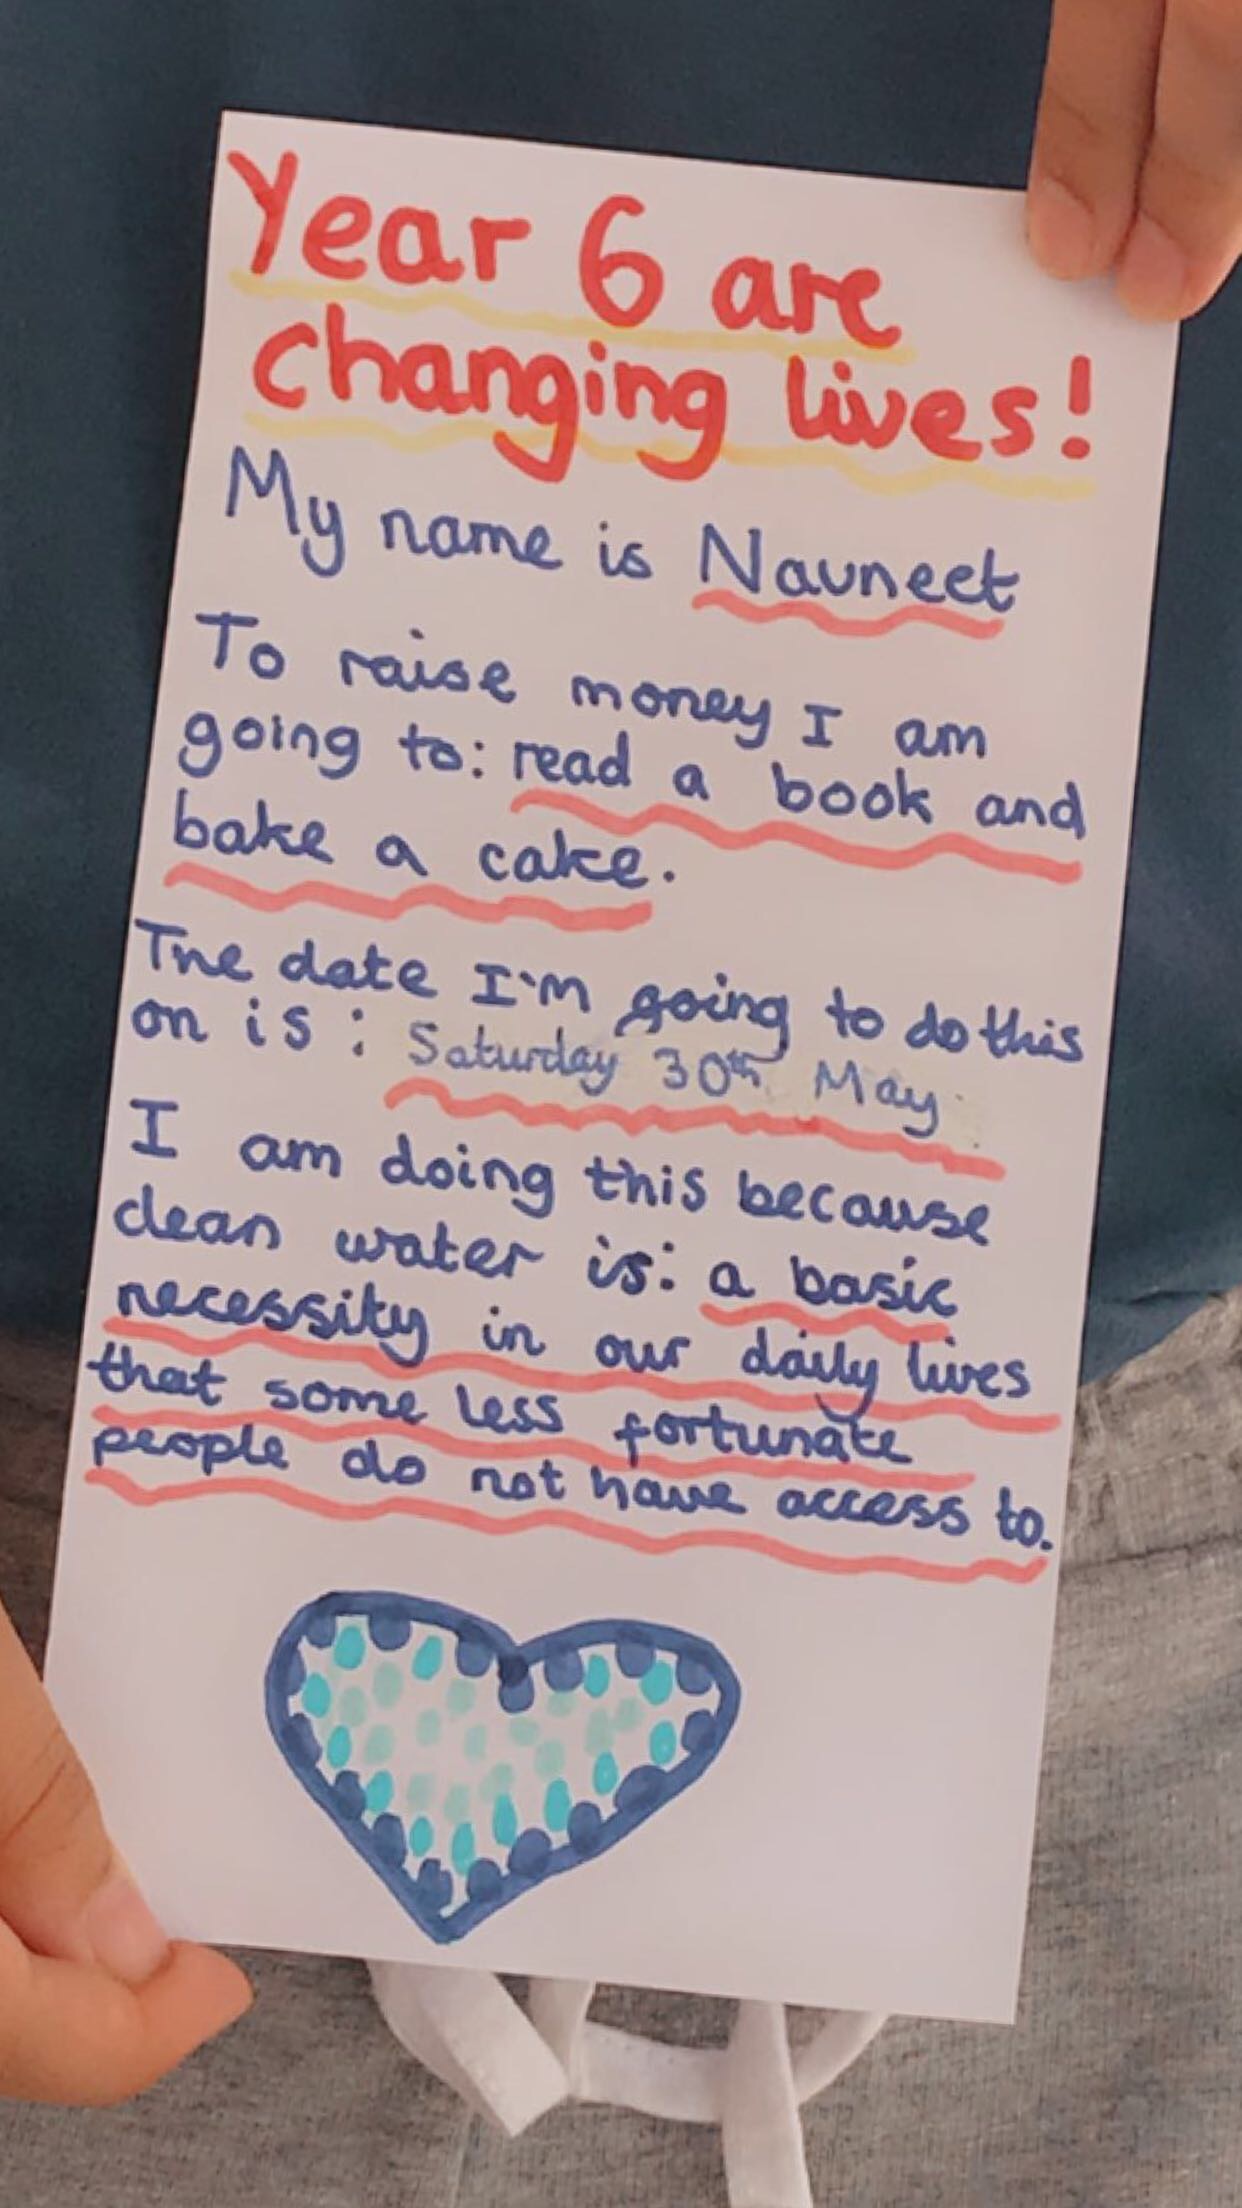 Year 6 are
changing lives!
My name is Navneet
To raise money I am
going to: read a book and
bake a cake.
The date I'm going to do this
on is: Saturday 30th May.
I am doing this because
clean water is: a basic
necessity in our daily lives
that some less fortunate
people do not have access to.